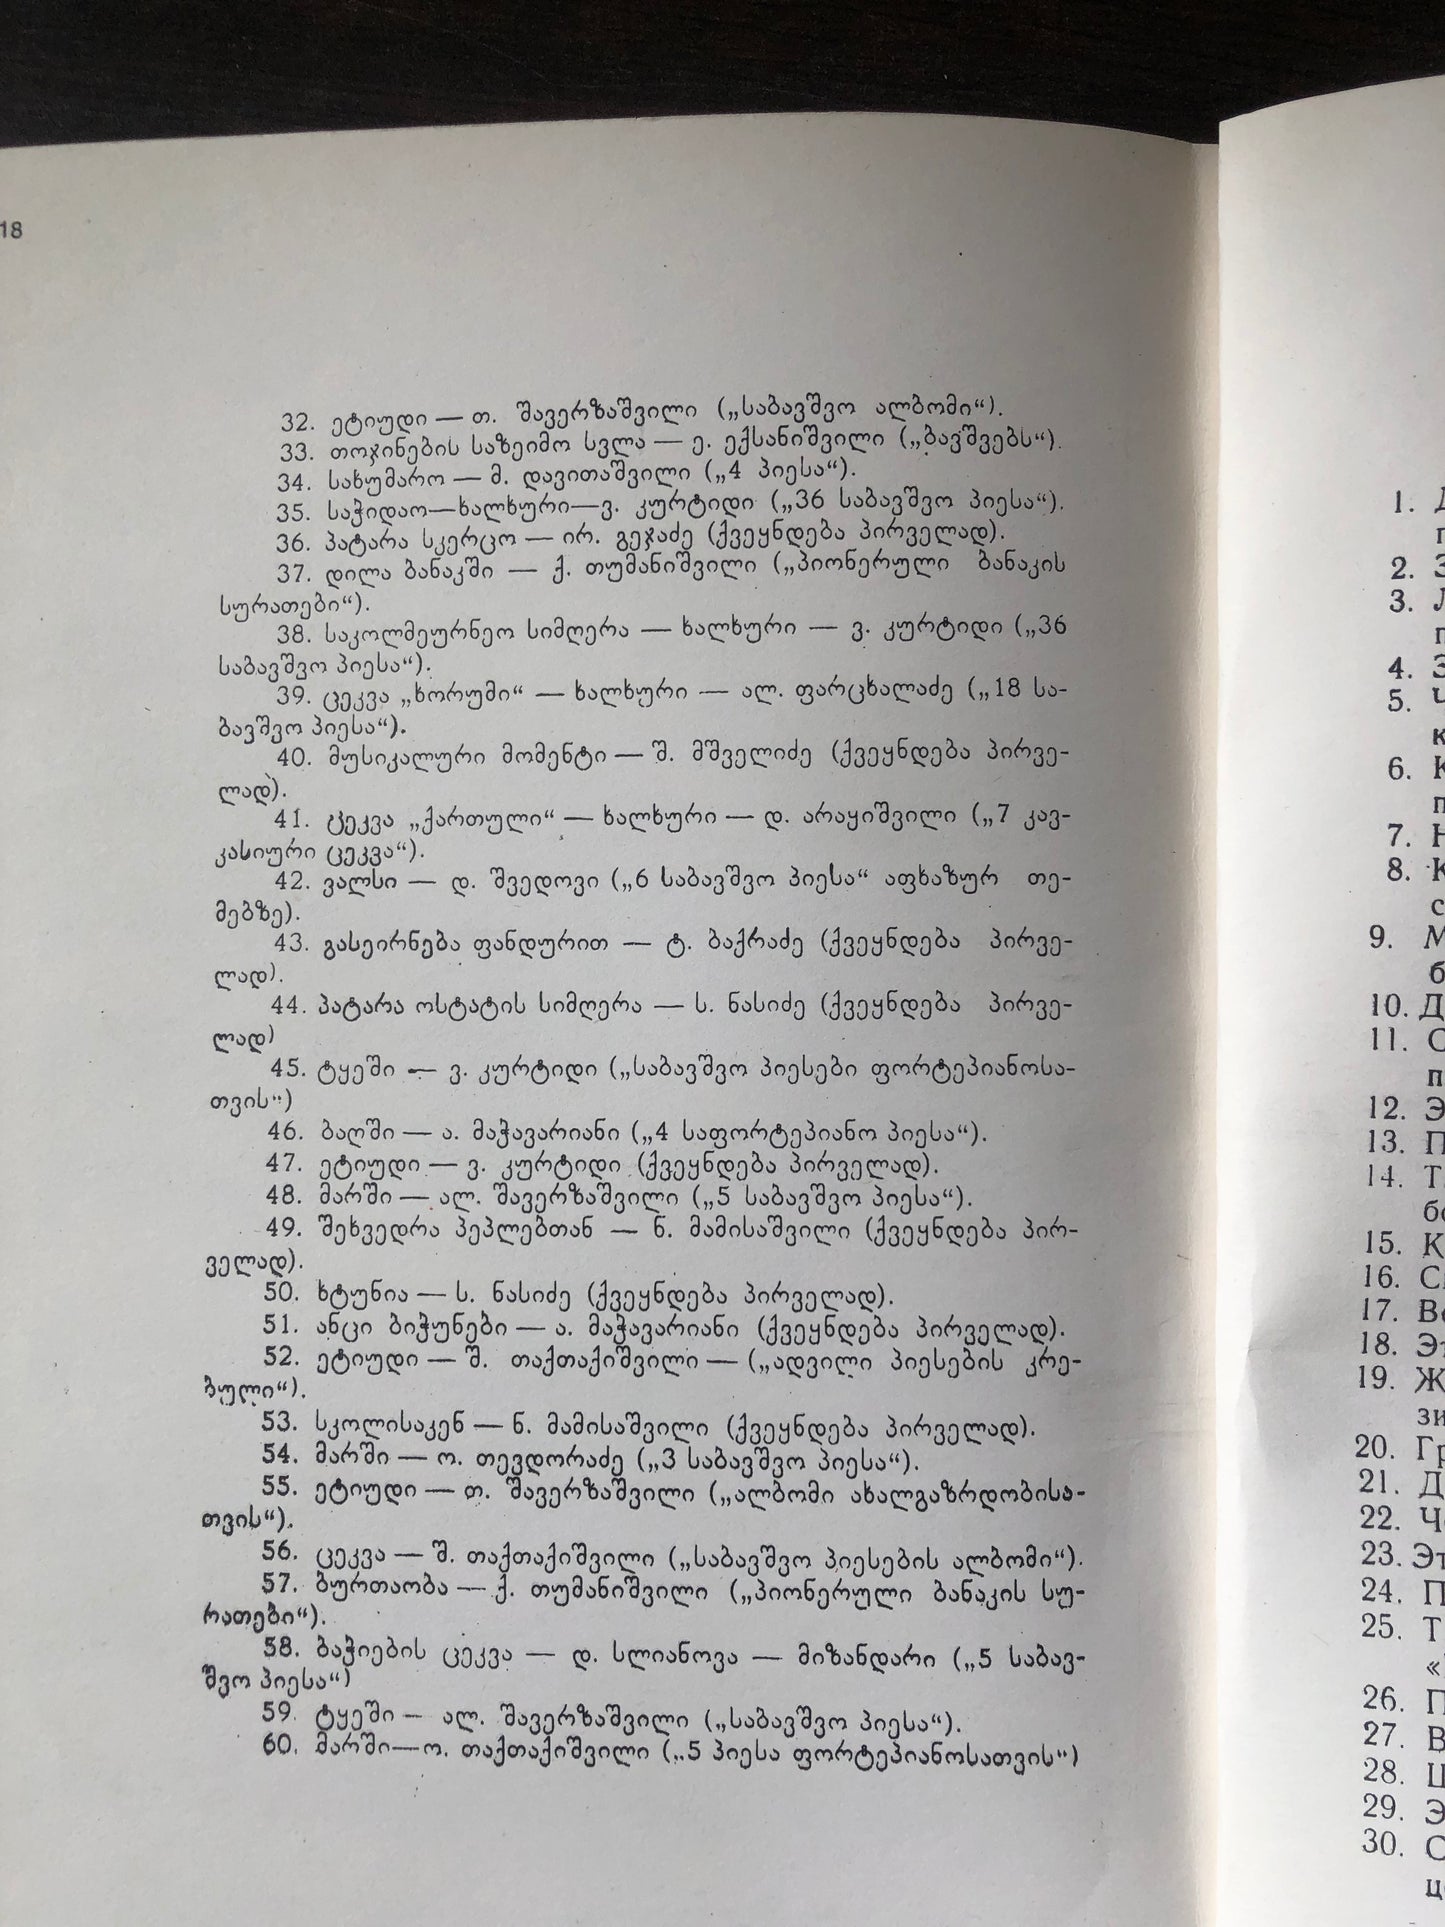 18
32. ეტიუდი — თ. შავერზაშვილი („საბავშვო ალბომი“).
33. თოჯინების საზეიმო სვლა — ე. ექსანიშვილი („ბავშვებს“).
34. სახუმარო — მ. დავითაშვილი („4 პიესა“).
35. საჭიდაო—ხალხური—ვ. კურტიდი („36 საბავშვო პიესა“).
36. პატარა სკერცო — ირ. გეჯაძე (ქვეყნდება პირველად).
37. დილა ბანაკში — ქ. თუმანიშვილი („პიონერული ბანაკის
სურათები“).
38. საკოლმეურნეო სიმღერა — ხალხური — ვ. კურტიდი („36
საბავშვო პიესა“).
39. ცეკვა „ხორუმი“ — ხალხური — ალ. ფარცხალაძე („18 სა-
ბავშვო პიესა“).
40. მუსიკალური მომენტი — შ. მშველიძე (ქვეყნდება პირვე-
ლად).
41. ცეკვა „ქართული“ — ხალხური — დ. არაყიშვილი („7 კავ-
კასიური ცეკვა“).
42. ვალსი — დ. შვედოვი („6 საბავშვო პიესა“ აფხაზურ თე-
მებზე).
43. გასეირნება ფანდურით — ტ. ბაქრაძე (ქვეყნდება პირვე-
ლად).
44. პატარა ოსტატის სიმღერა — ს. ნასიძე (ქვეყნდება პირვე-
ლად)
45. ტყეში — ვ. კურტიდი („საბავშვო პიესები ფორტეპიანოსა-
თვის“)
46. ბაღში — ა. მაჭავარიანი („4 საფორტეპიანო პიესა“).
47. ეტიუდი — ვ. კურტიდი (ქვეყნდება პირველად).
48. მარში — ალ. შავერზაშვილი („5 საბავშვო პიესა“).
49. შეხვედრა პეპლებთან — ნ. მამისაშვილი (ქვეყნდება პირ-
ველად).
50. ხტუნია — ს. ნასიძე (ქვეყნდება პირველად).
51. ანცი ბიჭუნები — ა. მაჭავარიანი (ქვეყნდება პირველად).
52. ეტიუდი — შ. თაქთაქიშვილი — („ადვილი პიესების კრე-
ბული“).
53. სკოლისაკენ — ნ. მამისაშვილი (ქვეყნდება პირველად).
54. მარში — ო. თევდორაძე („3 საბავშვო პიესა“).
55. ეტიუდი — თ. შავერზაშვილი („ალბომი ახალგაზრდობისა-
თვის“).
56. ცეკვა — შ. თაქთაქიშვილი („საბავშვო პიესების ალბომი“).
57. ბურთაობა — ქ. თუმანიშვილი („პიონერული ბანაკის სუ-
რათები“).
58. ბაჭიების ცეკვა — დ. სლიანოვა — მიზანდარი („5 საბავ-
შვო პიესა“)
59. ტყეში — ალ. შავერზაშვილი („საბავშვო პიესა“).
60. მარში—ო. თაქთაქიშვილი („5 პიესა ფორტეპიანოსათვის“)
1.
2.
3.
4.
5.
6.
7.
8.
9.
10.
11.
12.
13.
14.
15.
16.
17.
18.
19.
20.
21.
22.
23.
24.
25.
26.
27.
28.
29.
30.